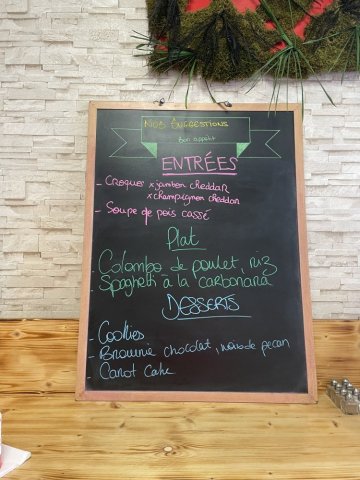 Nos Suggestions
Bon appétit
ENTRÉES
- Croques x jambon cheddar
x champignon cheddar
- Soupe de pois cassé
Plat
- Colombo de poulet, riz
- Spaghetti à la carbonara
DESSERTS
- Cookies
- Brownie chocolat, noix de pecan
- Carot Cake